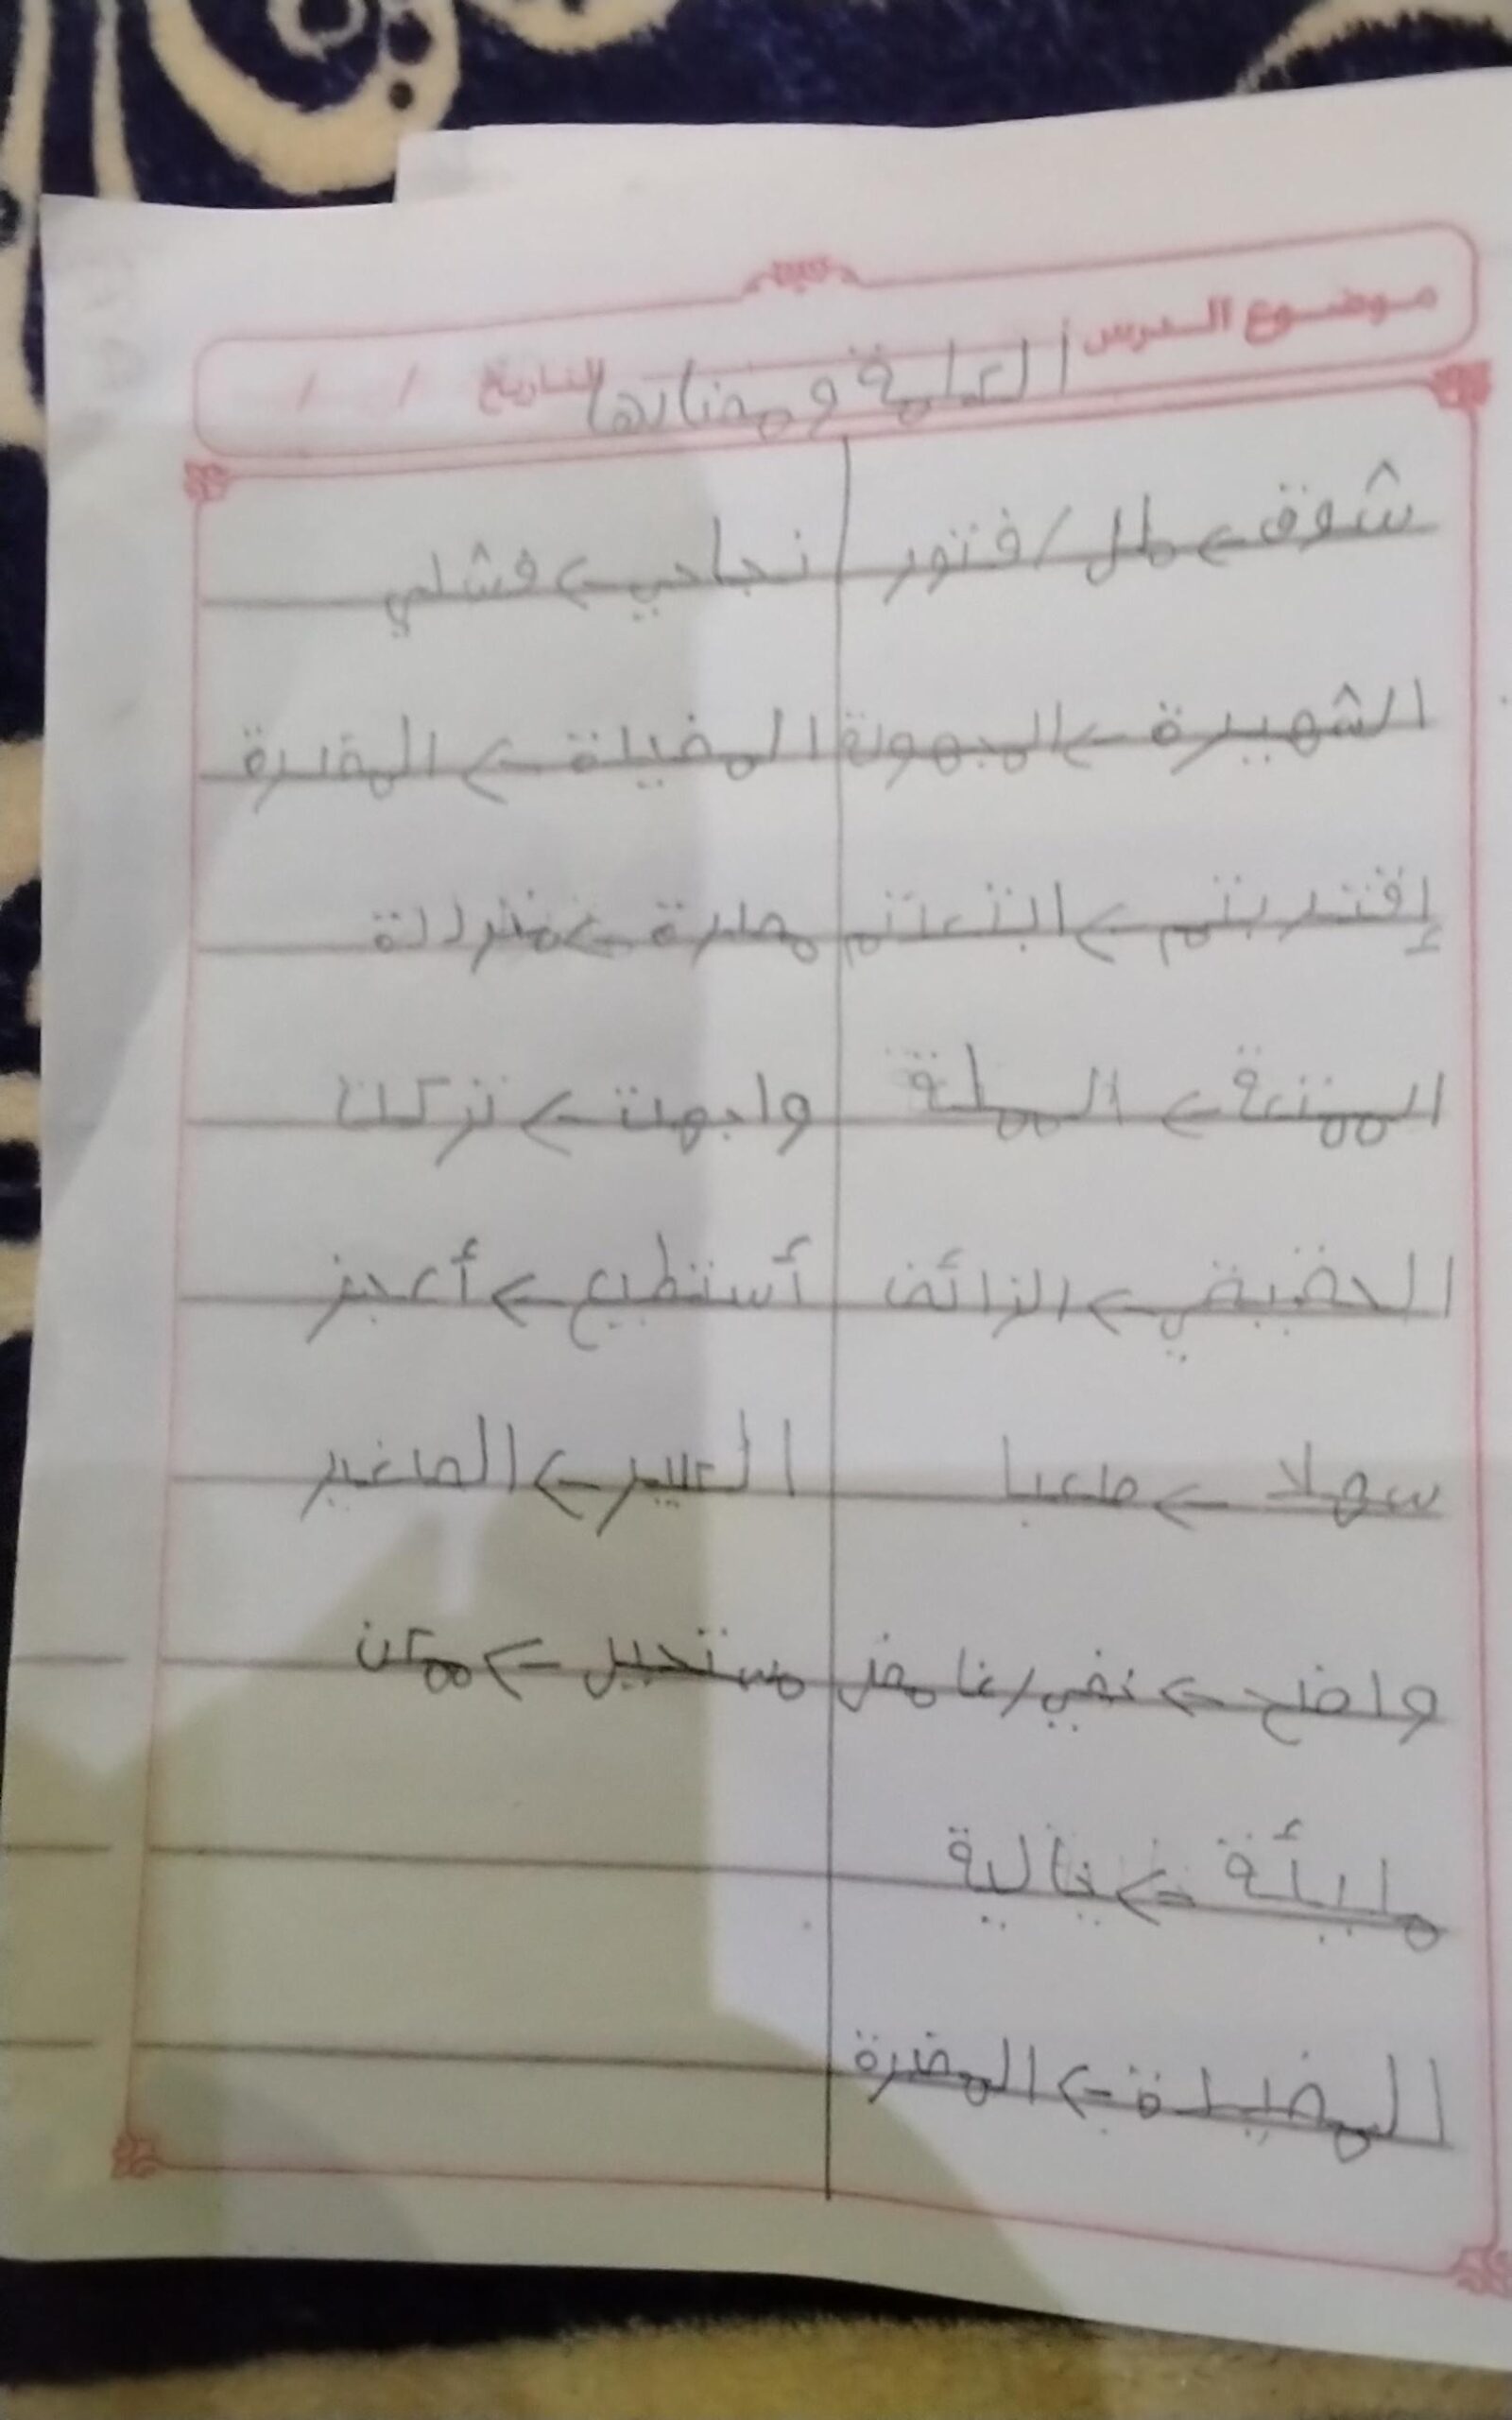 موضوع الدرس الكلمة ومضادها التاريخ / /
شوق -> ملل / فتور نجاحي -> فشلي
الشهيرة -> المجهولة المفيلة -> المضرة
إقتربتم -> ابتعدتم مصرة -> مترددة
الممتعة -> المملة واجهت -> تركت
الحقيقي -> الزائف أستطيع -> أعجز
سهلا -> صعبا الكبير -> الصغير
واضح -> خفي / غامض مستحيل -> ممكن
مليئة -> خالية
المفيدة -> المضرة